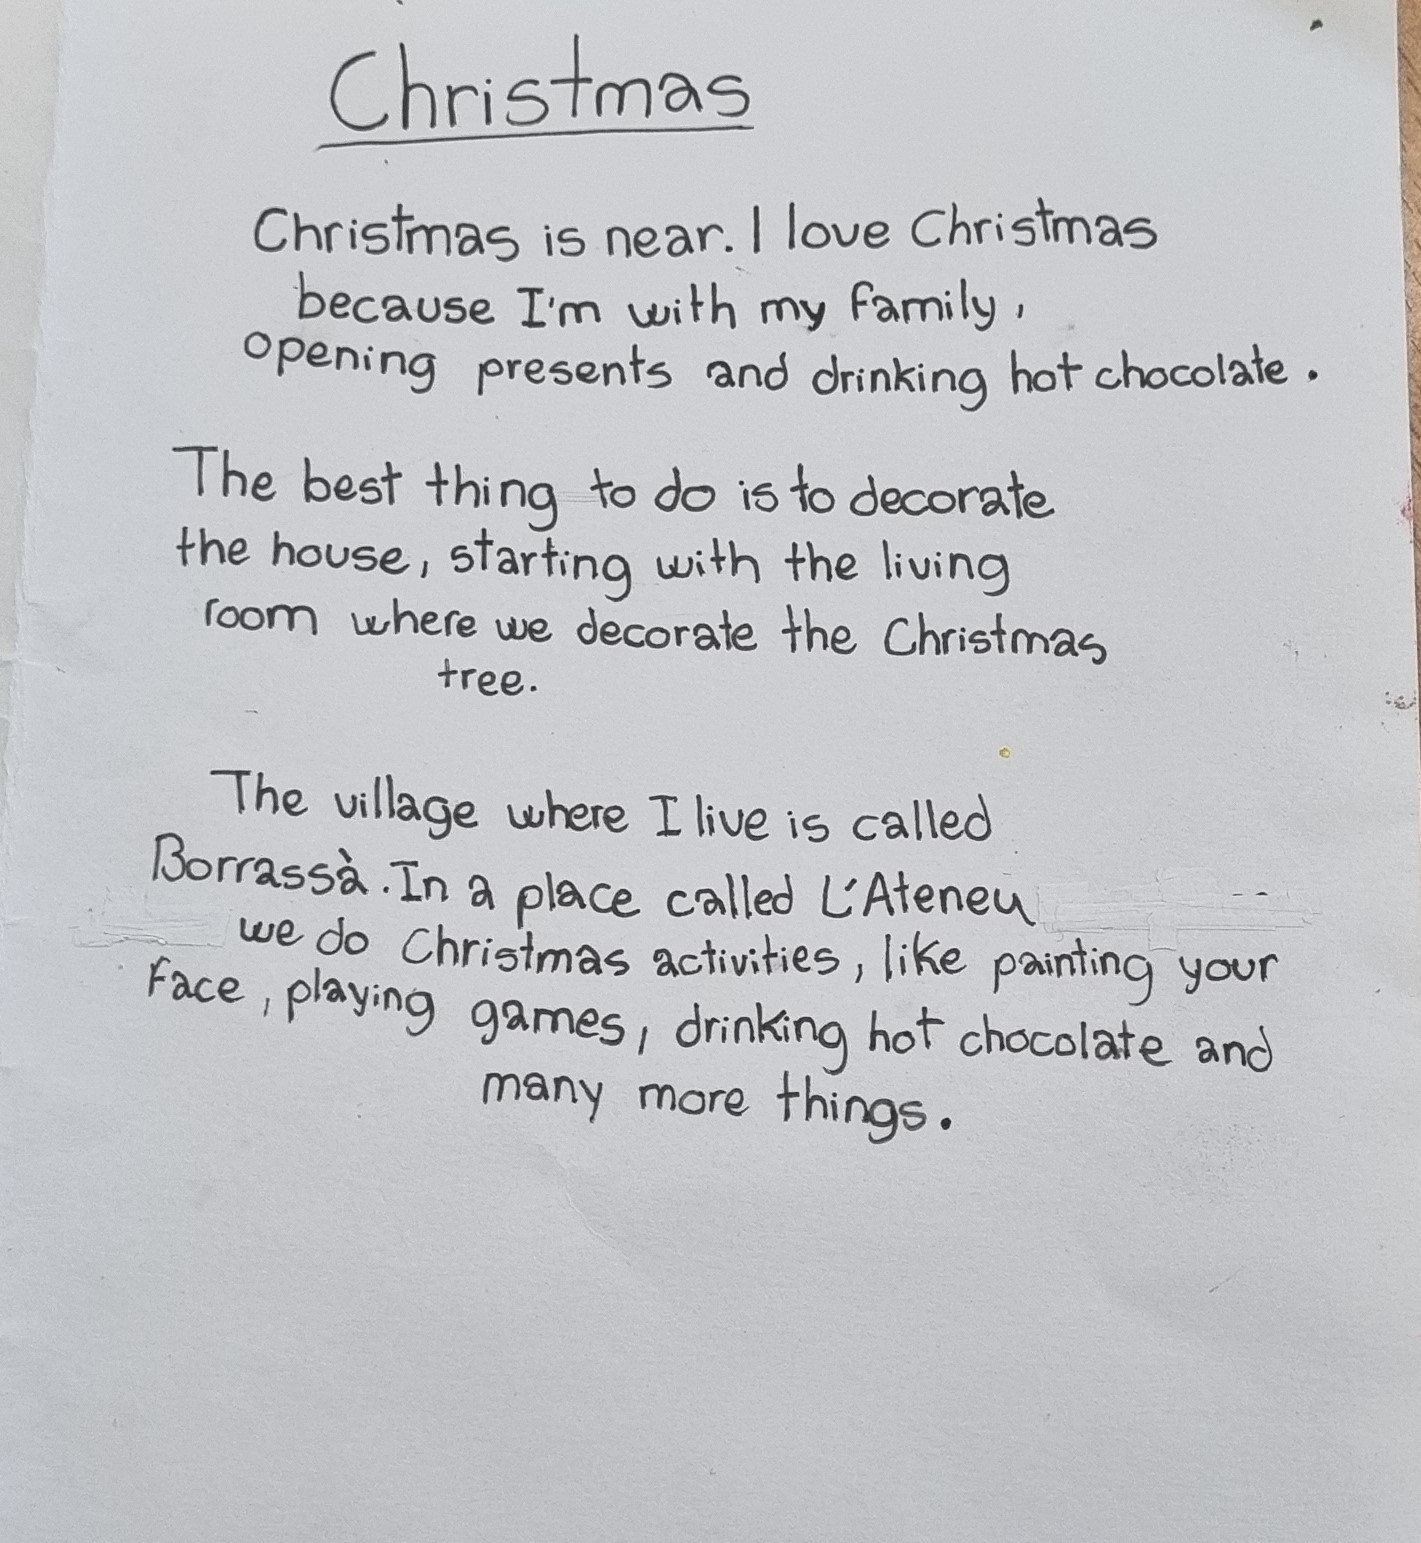 Christmas
Christmas is near. I love Christmas
because I'm with my family,
opening presents and drinking hot chocolate.
The best thing to do is to decorate
the house, starting with the living
room where we decorate the Christmas
tree.
The village where I live is called
Borrassà. In a place called L'Ateneu
we do Christmas activities, like painting your
face, playing games, drinking hot chocolate and
many more things.